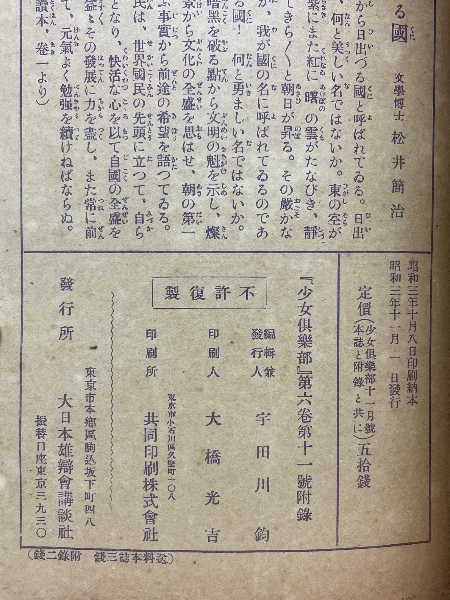 る國
文學博士 松井簡治
から日出づる國と呼ばれてゐる。日出
、何と美しい名ではないか。東の空が
紫にまた紅に曙の雲がたなびき、靜
しきら〳〵と朝日が昇る。その嚴かな
が、我が國の名に呼ばれてゐるのであ
る國！何と勇ましい名ではないか。
暗黒を破る點から文明の魁を示し、燦
景から文化の全盛を思はせ、朝の第一
ぶ事實から前途の希望を語つてゐる。
民は、世界國民の先頭に立つて、自ら
となり、快活な心を以て自國の全盛を
益〻その發展に力を盡し、また常に前
て、元氣よく勉強を續けねばならぬ。
讀本、卷一より）
昭和三年十月八日印刷納本
昭和三年十一月一日發行
定價（少女俱樂部十一月號本誌と附錄と共に）五拾錢
『少女俱樂部』第六卷第十一號附錄
不許復製
編輯兼發行人 宇田川鈞
印刷人 大橋光吉
東京市小石川區久堅町一〇八
印刷所 共同印刷株式會社
發行所
東京市本鄉區駒込坂下町四八
大日本雄辯會講談社
振替口座東京三九三〇
（送料本誌三錢 附錄二錢）